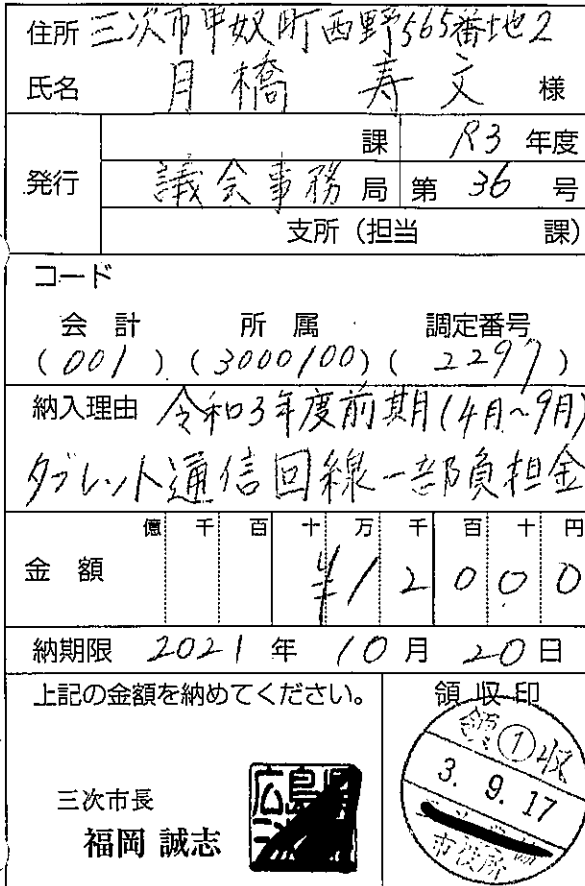 住所 三次市甲奴町西野565番地2
氏名 月橋 寿文 様
発行
課 R3 年度
議会事務局 第 36 号
支所（担当 課）
コード
会計 所属 調定番号
(001) (3000100) (2297)
納入理由 令和3年度前期(4月~9月)
タブレット通信回線一部負担金
億 千 百 十 万 千 百 十 円
金額 ¥12000
納期限 2021 年 10 月 20 日
上記の金額を納めてください。
三次市長
福岡 誠志
広島県
領収印
領①収
3. 9. 17
市役所